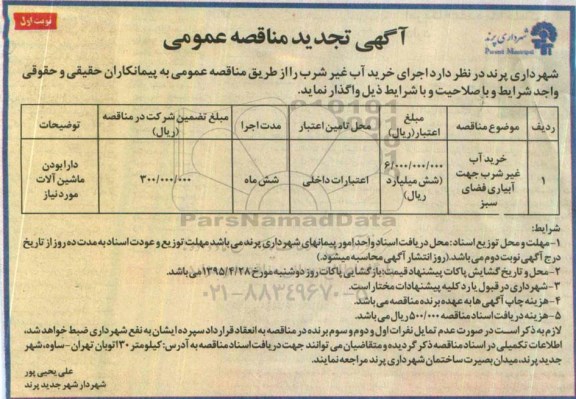 نوبت اول
شهرداری پرند
Parand Municipal
آگهی تجدید مناقصه عمومی
شهرداری پرند در نظر دارد اجرای خرید آب غیر شرب را از طریق مناقصه عمومی به پیمانکاران حقیقی و حقوقی
واجد شرایط و با صلاحیت و با شرایط ذیل واگذار نماید.
ردیف موضوع مناقصه مبلغ اعتبار(ریال) محل تامین اعتبار مدت اجرا مبلغ تضمین شرکت در مناقصه (ریال) توضیحات
۱ خرید آب غیر شرب جهت آبیاری فضای سبز ۶/۰۰۰/۰۰۰/۰۰۰ (شش میلیارد ریال) اعتبارات داخلی شش ماه ۳۰۰/۰۰۰/۰۰۰ دارا بودن ماشین آلات مورد نیاز
ParsNamadData
۰۲۱-۸۸۳۴۹۶۷۰-۵
شرایط:
۱-مهلت و محل توزیع اسناد: محل دریافت اسناد واحد امور پیمانهای شهرداری پرند می باشد مهلت توزیع و عودت اسناد به مدت ده روز از تاریخ
درج آگهی نوبت دوم می باشد.(روز انتشار آگهی محاسبه میشود.)
۲-محل و تاریخ گشایش پاکات پیشنهاد قیمت: بازگشایی پاکات روز دوشنبه مورخ ۱۳۹۵/۴/۲۸ می باشد.
۳-شهرداری در قبول یا رد کلیه پیشنهادات مختار است.
۴-هزینه چاپ آگهی ها به عهده برنده مناقصه می باشد.
۵-هزینه دریافت اسناد مناقصه ۵۰۰/۰۰۰ ریال می باشد.
لازم به ذکر است در صورت عدم تمایل نفرات اول و دوم و سوم برنده در مناقصه به انعقاد قرارداد سپرده ایشان به نفع شهرداری ضبط خواهد شد،
اطلاعات تکمیلی در اسناد مناقصه ذکر گردیده و متقاضیان می توانند جهت دریافت اسناد مناقصه به آدرس: کیلومتر ۳۰ اتوبان تهران -ساوه، شهر
جدید پرند، میدان بصیرت ساختمان شهرداری پرند مراجعه نمایند.
علی یحیی پور
شهردار شهر جدید پرند